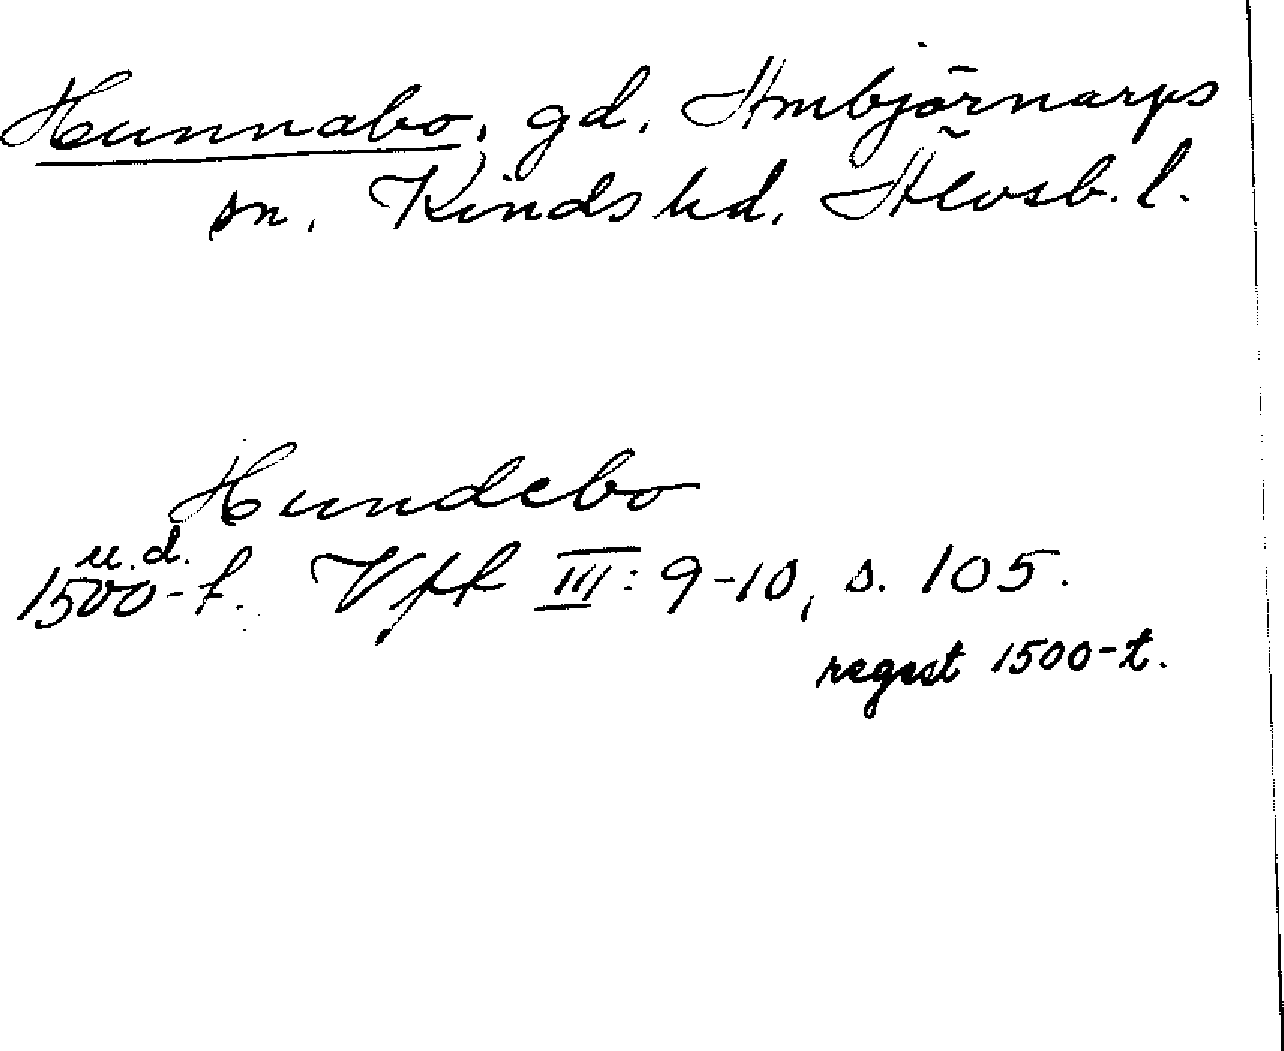 Hunnabo, gd, Ambjörnarps
sn, Kinds hd, Älvsb. l.
Hundebo
u.d.
1500-t. Vff III: 9-10, s. 105.
regest 1500-t.